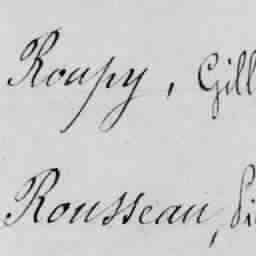 Roupy, Gill
Rousseau,